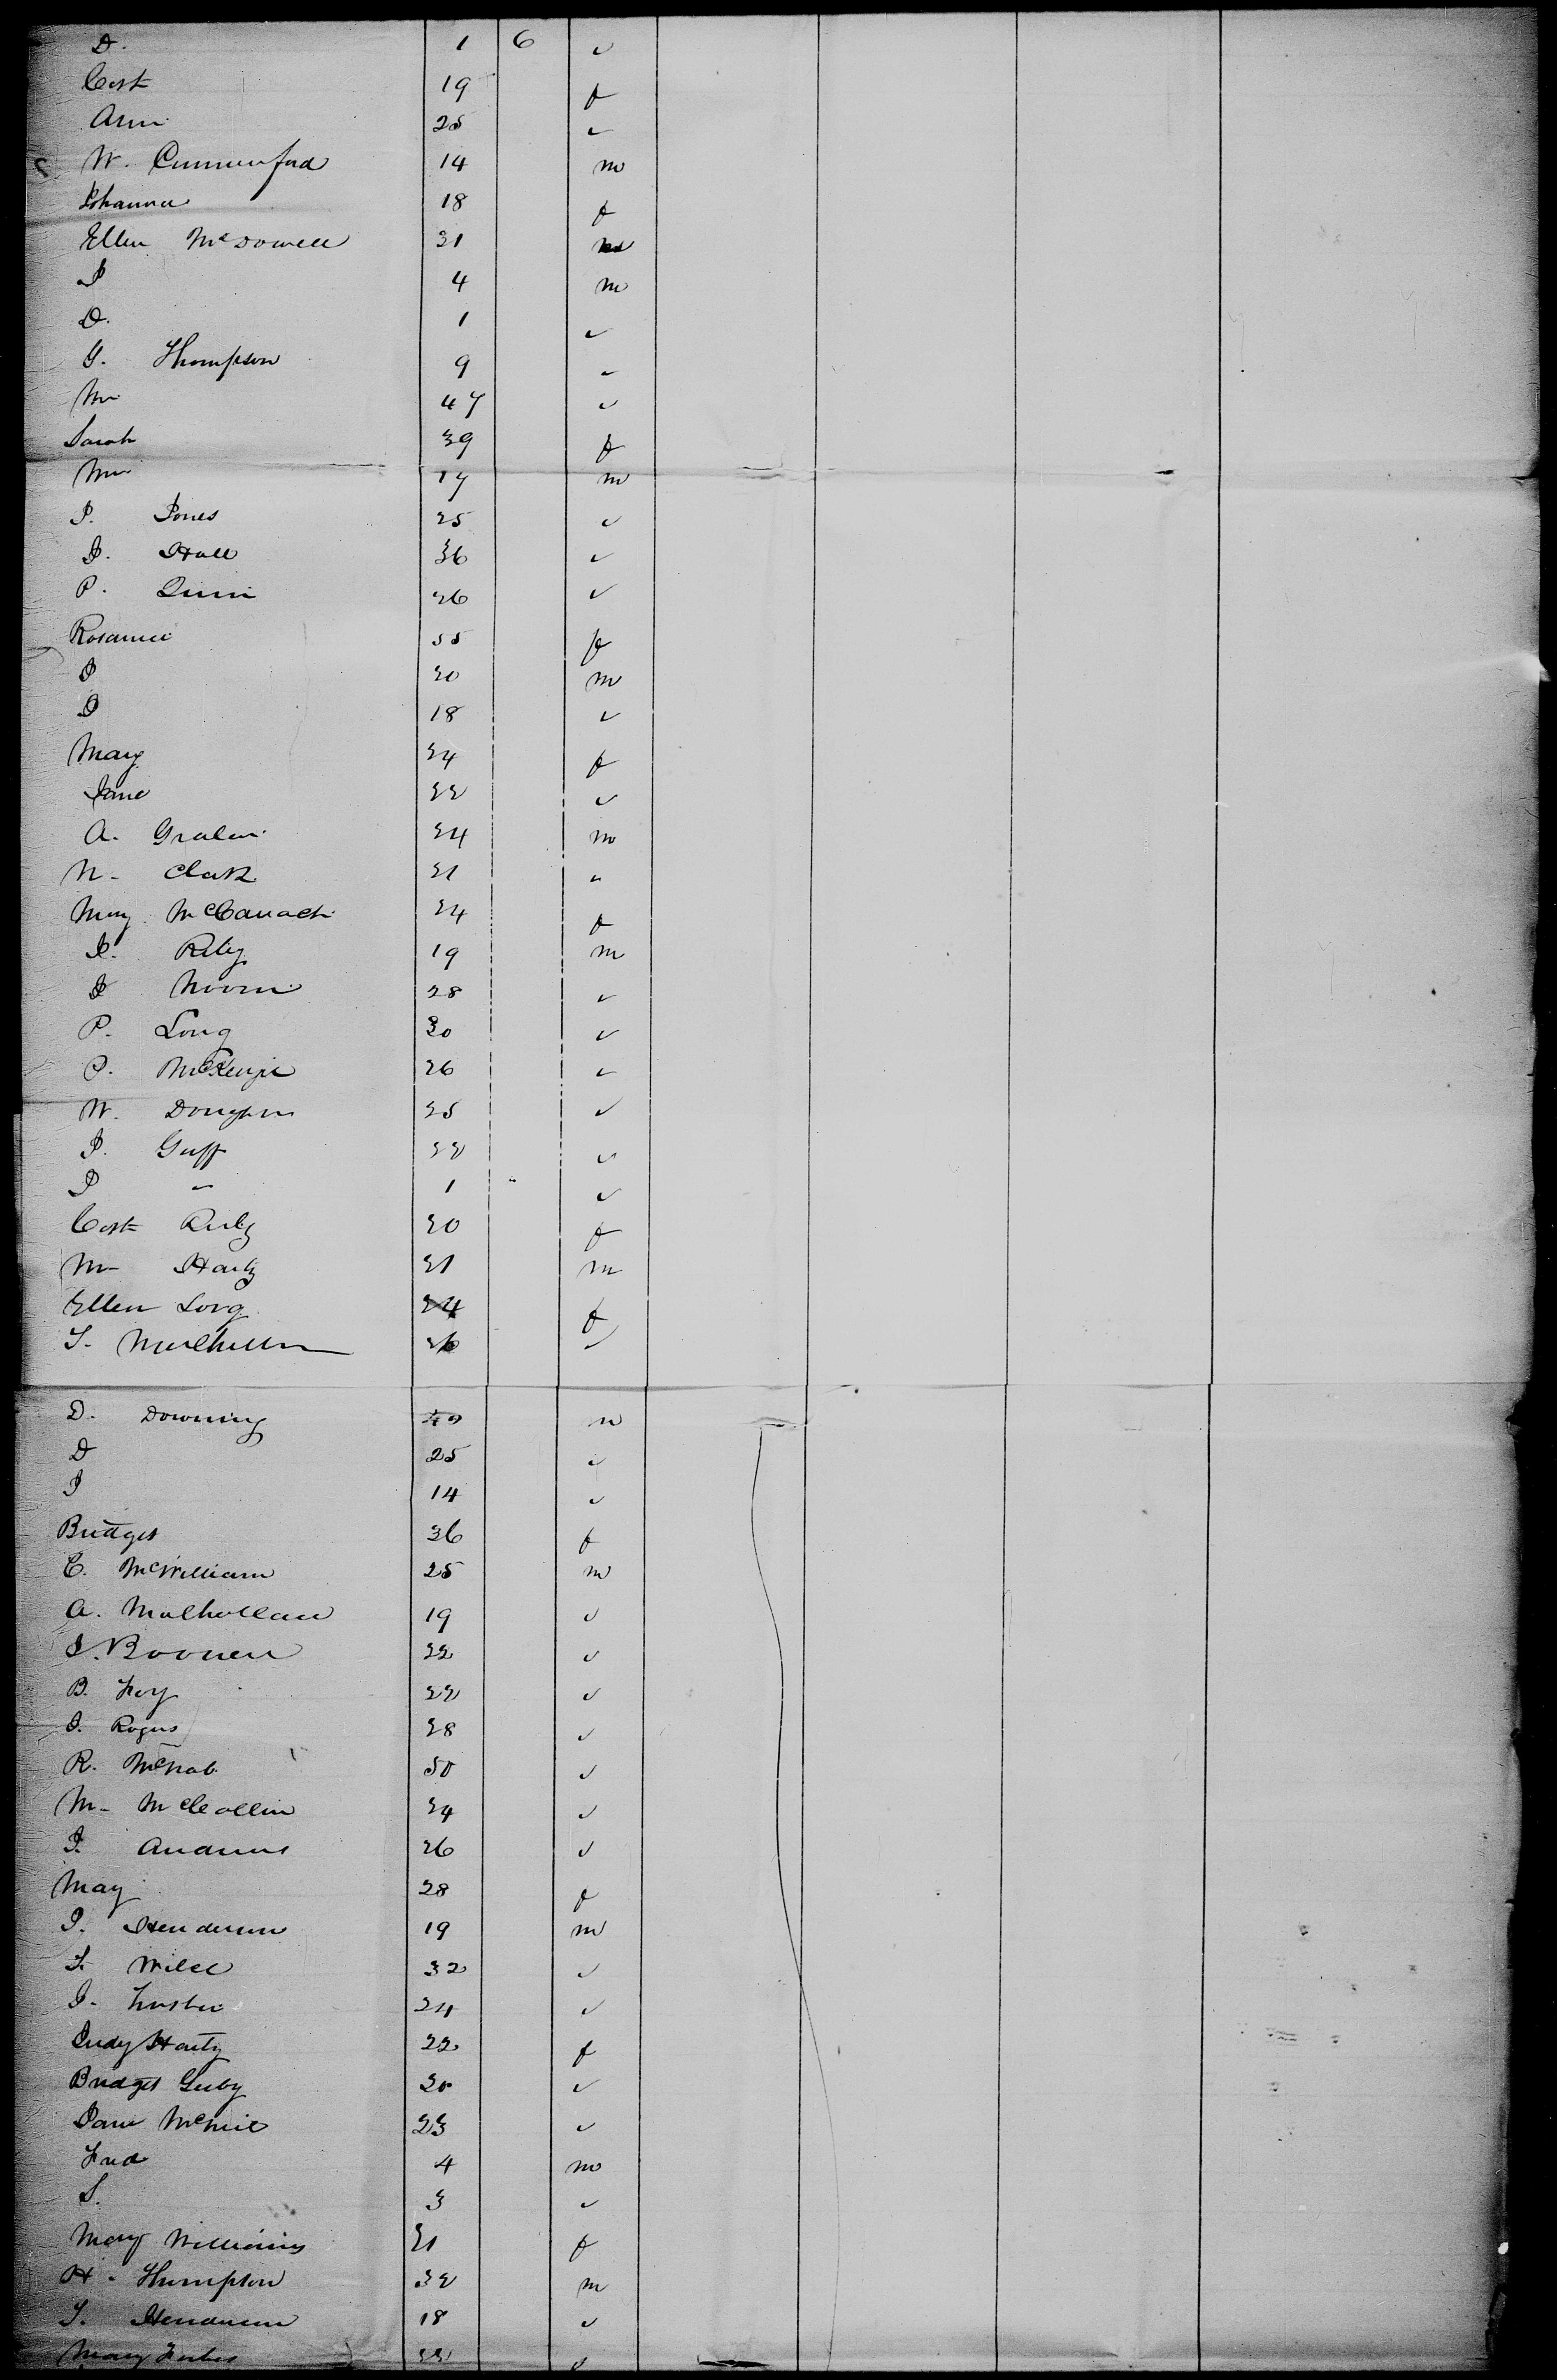 D. 1 6 ✓
Cath 19 f
Ann 25 ✓
W. 14 m
Johanna 18 f
Ellen McDowell 31
J 4 m
D. 1 ✓
G. Thompson 9 ✓
Wm 47 ✓
Sarah 39 f
Wm 17 m
J. Jones 25 ✓
J. Hall 36 ✓
P. Quin 26 ✓
Rosanna 55 f
J 20 m
J 18 ✓
Mary 24 f
Jane 22 ✓
A. 24 m
N. Clark 21 "
Mary 24 f
J. Rily 19 m
J 28 ✓
P. Long 30 ✓
P. McKenzie 26 ✓
W. 25 ✓
J. Guff 22 ✓
J " 1 " ✓
Cath 20 f
M. Harty 21 m
Ellen Long 24 f
T. 26 ✓
D. Downing 40 m
D 25 ✓
J 14 ✓
Bridget 36 f
C. McWilliam 25 m
A. Mulhollan 19 ✓
J. 22 ✓
B. Foy 22 ✓
J. Rogers 28 ✓
R. McNab 50 ✓
M. McCollin 24 ✓
J. Andrews 26 ✓
Mary 28 f
J. Henderson 19 m
T. 32 ✓
J. 24 ✓
Judy Harty 22 f
Bridget 20 ✓
Jane McNiel 23 ✓
Fred 4 m
S. 3 ✓
Mary Williams 21 f
H. Thompson 32 m
T. Henderson 18 ✓
Mary 22 ✓